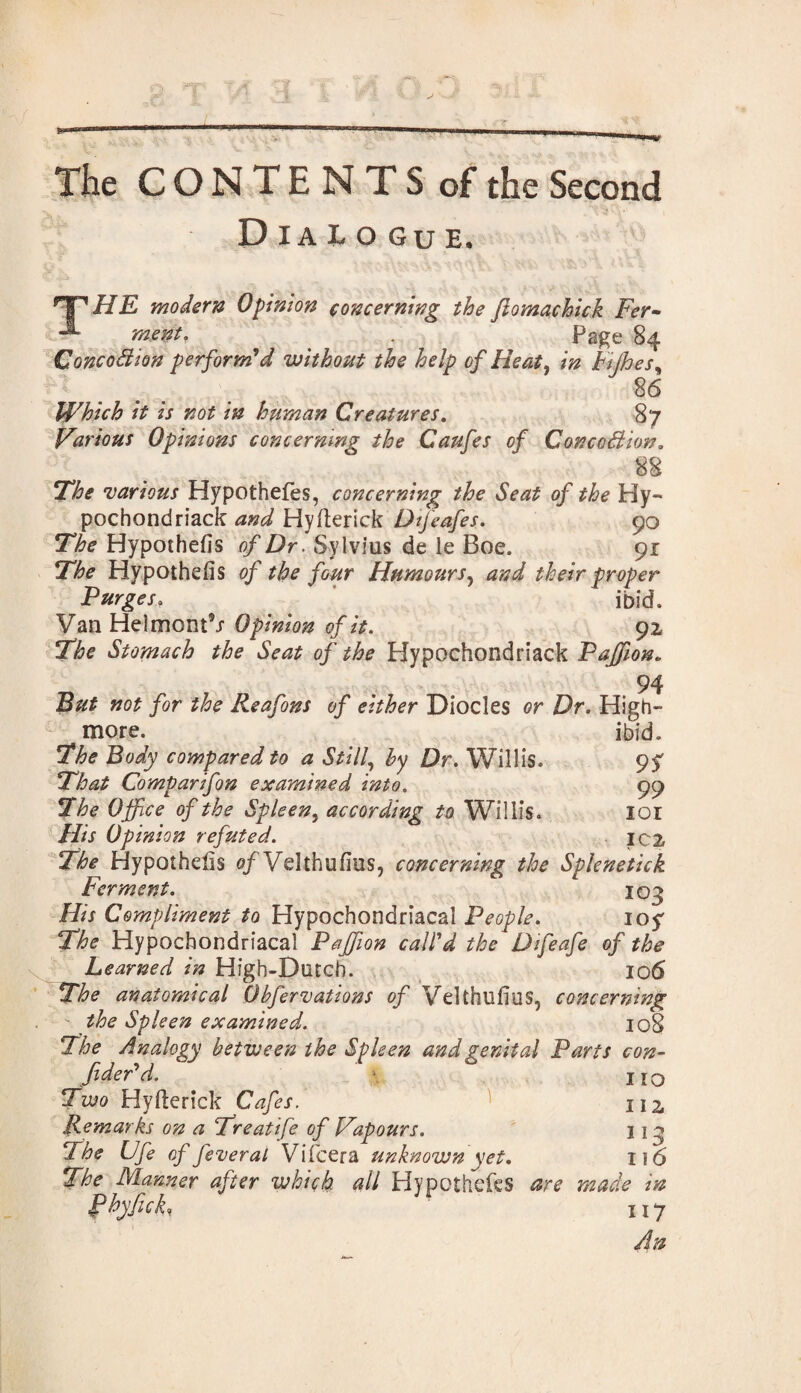 The CONTENTS of the Second
DIALOGUE.
THE modern Opinion concerning the ſtomachick Fer-
ment. Page 84
Concoction perform'd without the help of Heat, in Fiſhes,
86
Which it is not in human Creatures. 87
Various Opinions concerning the Cauſes of Concoction.
88
The various Hypotheſes, concerning the Seat of the Hy-
pochondriack and Hyſterick Diſeaſes. 90
The Hypotheſis of Dr. Sylvius de le Boe. 91
The Hypotheſis of the four Humours, and their proper
Purges. ibid.
Van Helmont's Opinion of it. 92
The Stomach the Seat of the Hypochondriack Paſſion.
94
But not for the Reaſons of either Diocles or Dr. High-
more. ibid.
The Body compared to a Still, by Dr. Willis. 95
That Compariſon examined into. 99
The Office of the Spleen, according to Willis. 101
His Opinion refuted. 102
The Hypotheſis of Velthuſius, concerning the Splenetick
Ferment. 103
His Compliment to Hypochondriacal People. 105
The Hypochondriacal Paſſion call'd the Diſeaſe of the
Learned in High-Dutch. 106
The anatomical Obſervations of Velthuſius, concerning
the Spleen examined. 108
The Analogy between the Spleen and genital Parts con-
ſider'd. 110
Two Hyſterick Caſes. 112
Remarks on a Treatiſe of Vapours. 113
The Uſe of ſeveral Viſcera unknown yet. 116
The Manner after which all Hypotheſes are made in
Phyſick, 117
An